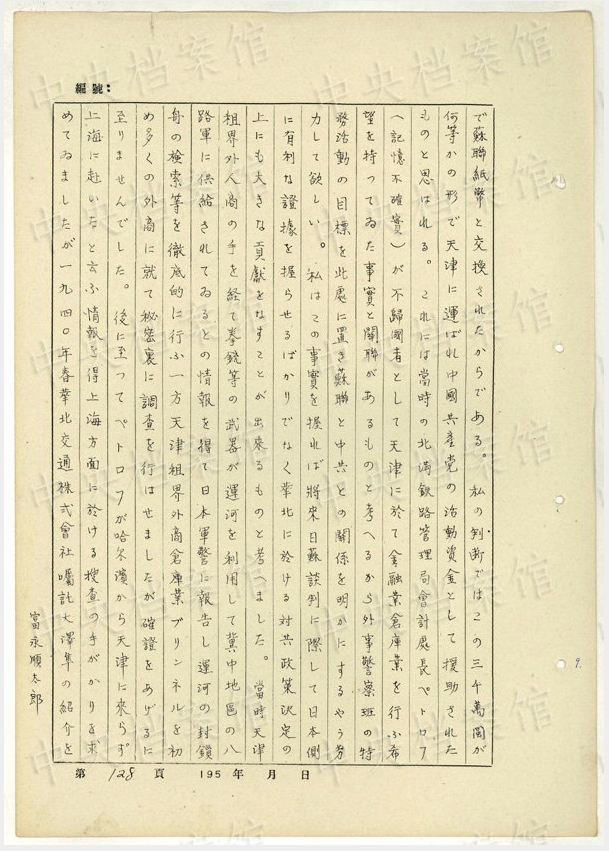 編號:
で蘇聯紙幣と交換されたからである。私の判断ではこの三千萬圓が
何等かの形で天津に運ばれ中國共産党の活動資金として援助された
ものと思はれる。これには當時の北満鉄路管理局會計處長ペトロフ
(記憶不確實)が不歸國者として天津に於て金融業倉庫業を行ふ希
望を持ってゐた事實と関聯があるものと考へるから外事警察班の特
務活動の目標を此處に置き蘇聯と中共との關係を明かにするやう努
力して欲しい。私はこの事實を握れば將來日蘇談判に際して日本側
に有利な證據を握らせるばかりでなく華北に於ける対共政策決定の
上にも大きな貢献をなすことが出來るものと考へました。當時天津
租界外人商の手を経て拳銃等の武器が運河を利用して冀中地區の八
路軍に供給されてゐるとの情報を得て日本軍警に報告し運河の封鎖
舟の検索等を徹底的に行ふ一方天津租界外商倉庫業ブリンネルを初
め多くの外商に就て秘密裏に調査を行はせましたが確證をあげるに
至りませんでした。後に至ってペトロフが哈尔濱から天津に来らず
上海に赴いたと云ふ情報を得上海方面に於ける捜査の手がかりを求
めてゐましたが一九四〇年春華北交通株式會社囑託大澤隼の紹介を
富永順太郎
第 128 頁 195 年 月 日
9.
中央档案馆